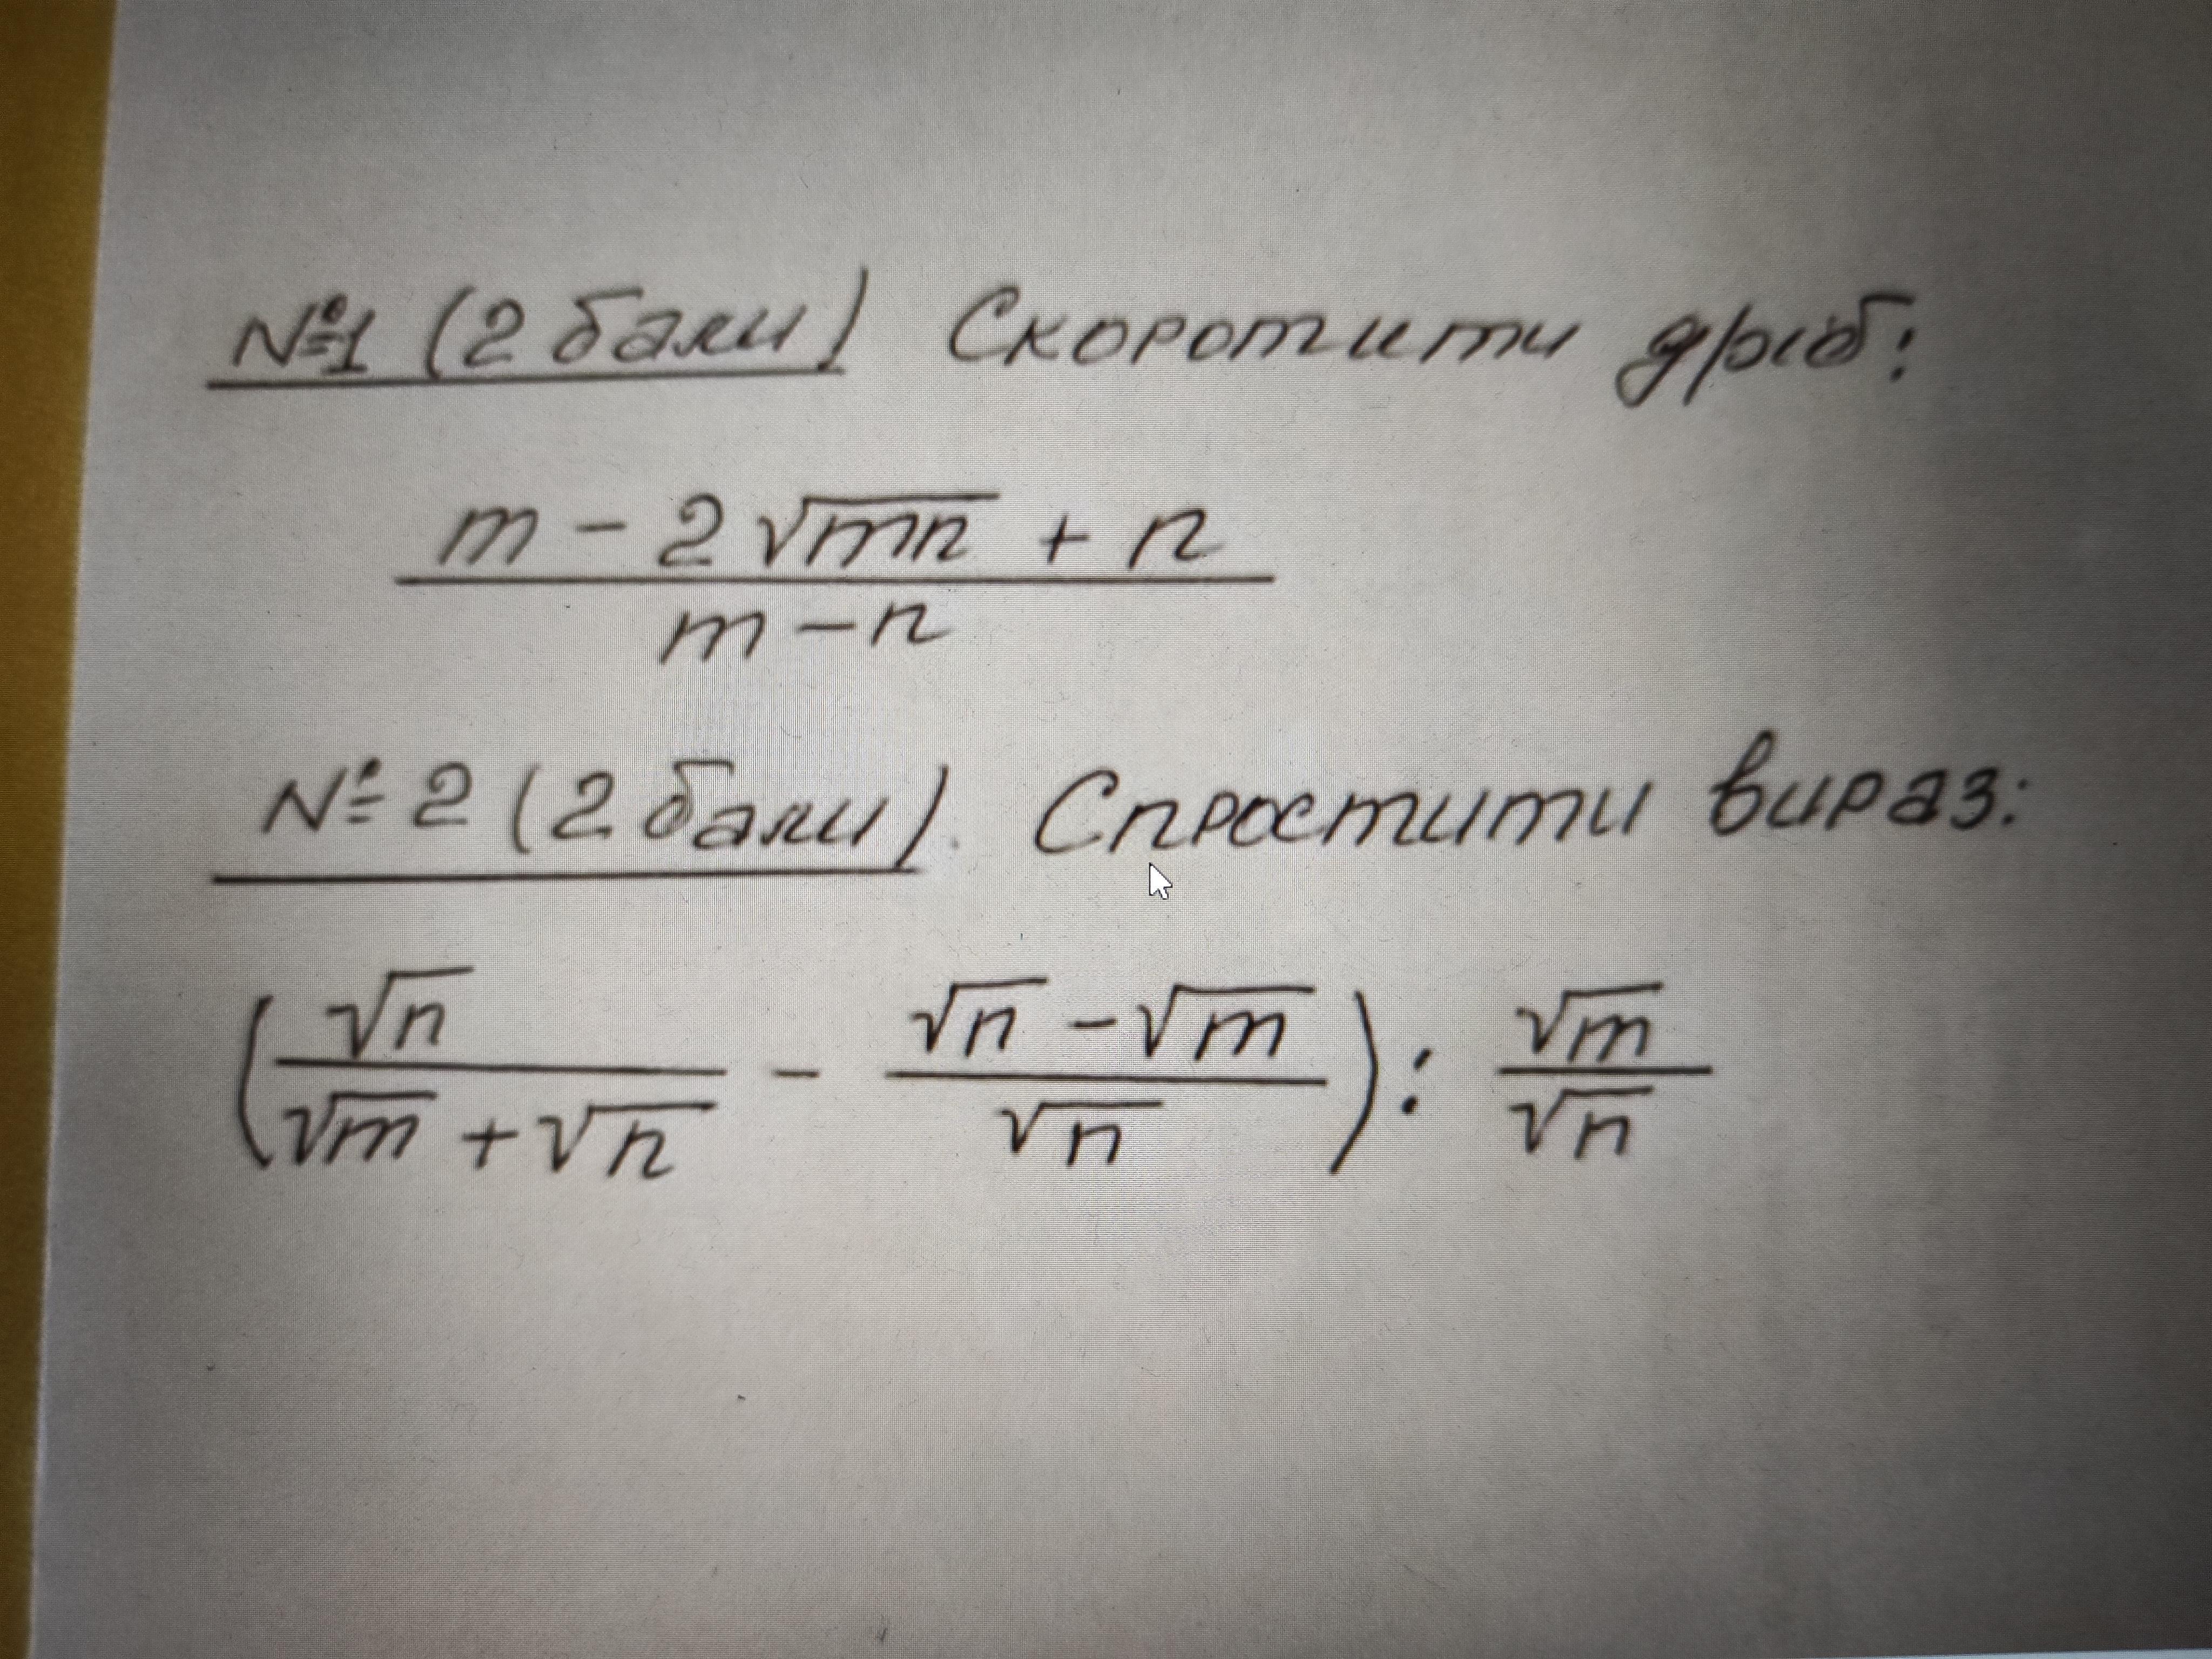 №1 (2 бали) Скоротити дріб:
m - 2√mn + n
m - n
№ 2 (2 бали). Спростити вираз:
(√n / (√m + √n) - (√n - √m) / √n) : √m / √n